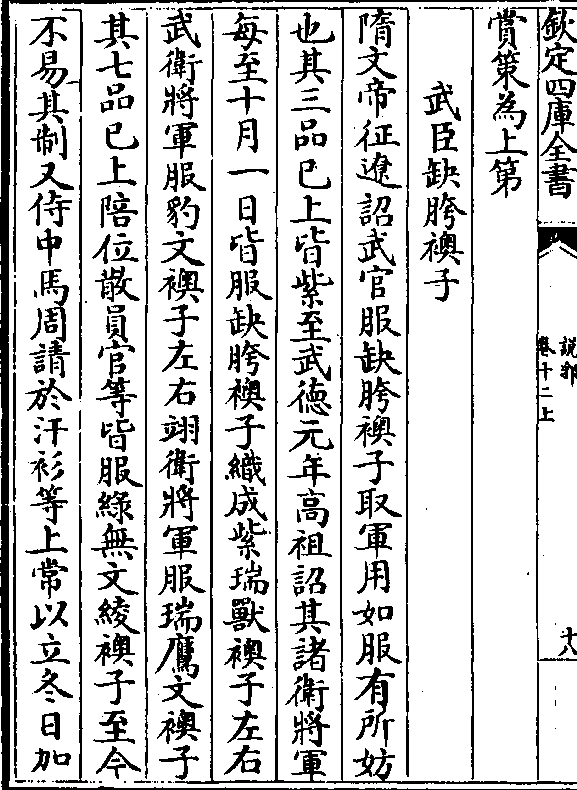 欽定四庫全書
說郛
卷十二上
十八
賞策為上第
武臣缺胯襖子
隋文帝征遼詔武官服缺胯襖子取軍用如服有所妨
也其三品已上皆紫至武徳元年高祖詔其諸衛將軍
每至十月一日皆服缺胯襖子織成紫瑞獸襖子左右
武衛將軍服豹文襖子左右翊衛將軍服瑞鷹文襖子
其七品已上陪位散員官等皆服綠無文綾襖子至今
不易其制又侍中馬周請於汗衫等上常以立冬日加